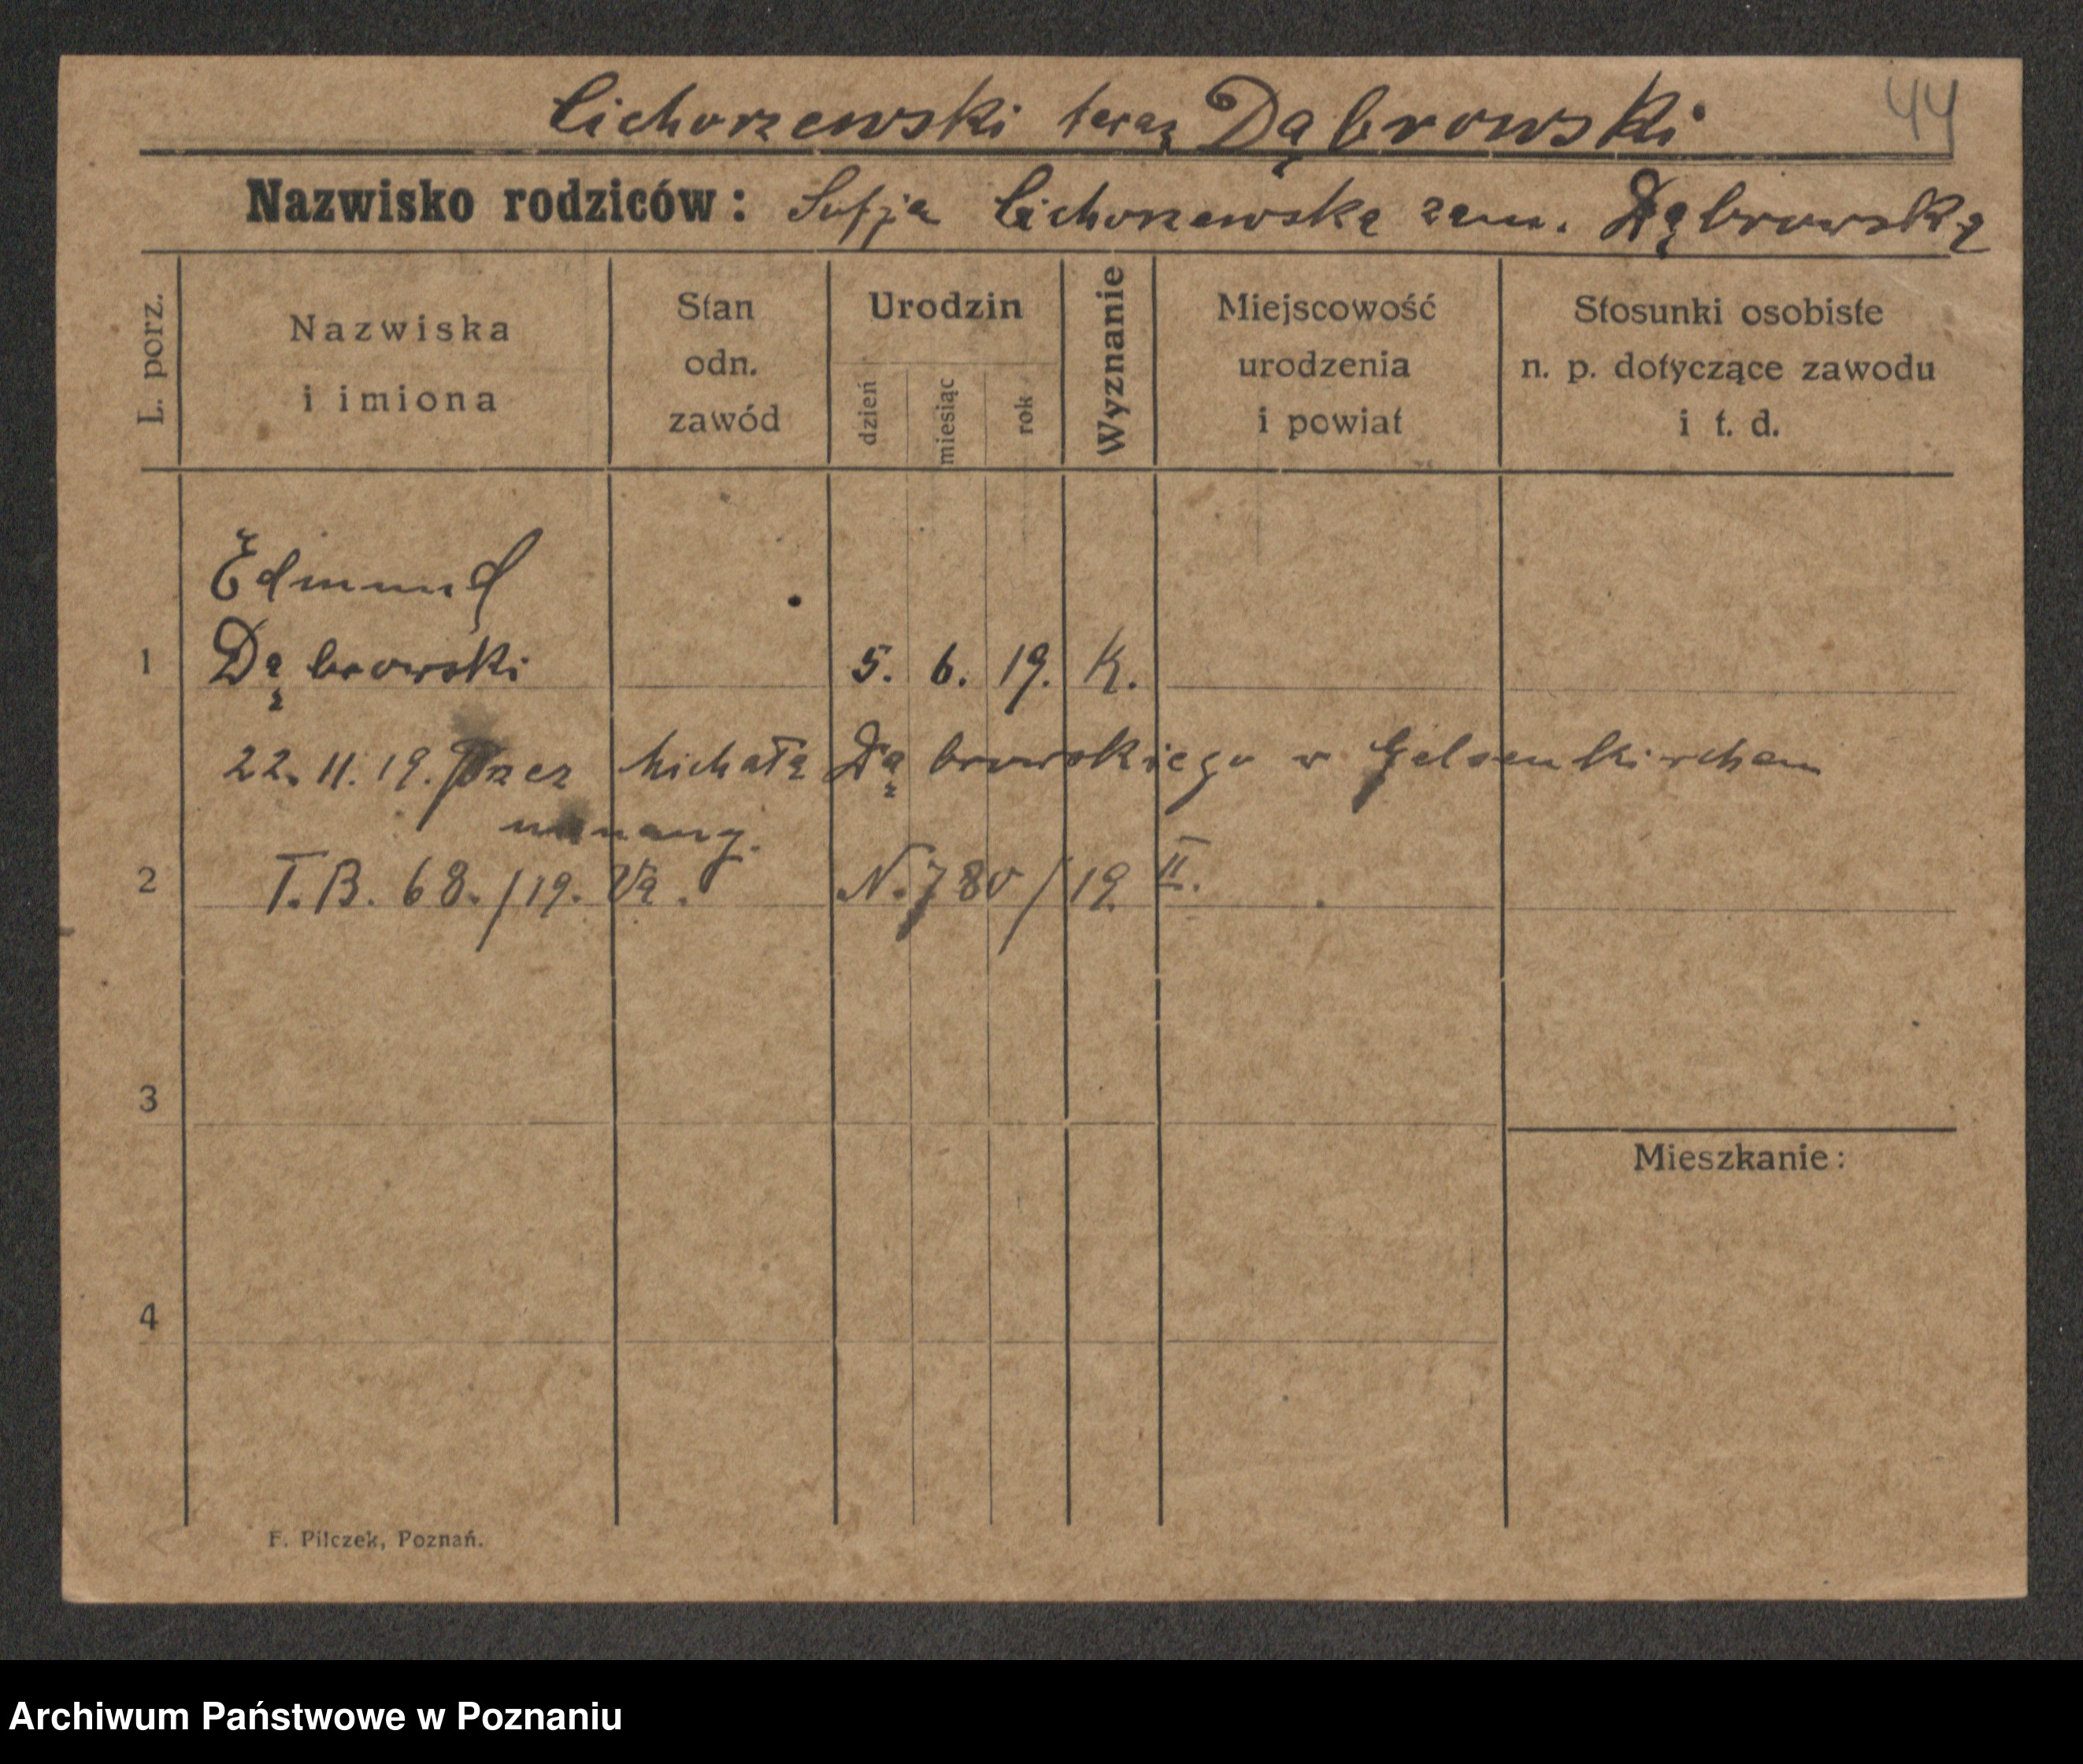 Cichorzewski teraz Dąbrowski 44
Nazwisko rodziców: Sofja Cichorzewska zam. Dąbrowska
L. porz.
Nazwiska
i imiona
Stan
odn.
zawód
Urodzin
dzień
miesiąc
rok
Wyznanie
Miejscowość
urodzenia
i powiat
Stosunki osobiste
n. p. dotyczące zawodu
i t. d.
Edmund
1 Dąbrowski 5. 6. 19. K.
22. 11. 19. przez Michała Dąbrowskiego w Gelsenkirchen
uznany.
2 T.B. 68./19. Va. N. 780/19 II.
3
Mieszkanie:
4
F. Pilczek, Poznań.
Archiwum Państwowe w Poznaniu